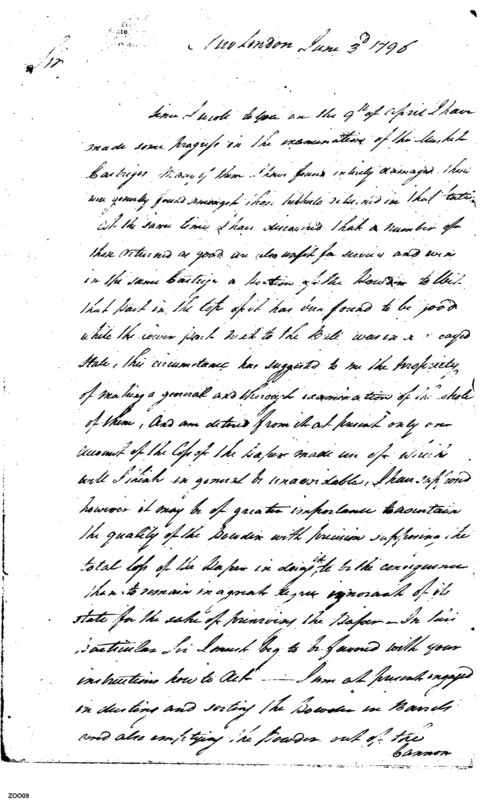 New London June 3d 1796
Sir
Since I wrote to you on the 9th of April I have
made some progress in the examination of the Musket
Cartriges Many of them I have found intirely damaged, these
were generally found amongst those which were returned in that state
At the same time I have discovered that a number of
those returned as good are also unfit for service and even
in the same Cartrige a portion of the Powder to Wit
that part in the top of it has been found to be good
while the lower part next to the Ball was in a caged
State, this circumstance has suggested to me the propriety
of making a general and thorough examination of the whole
of them, And am detered from it at present only on
account of the loss of the Paper made use of which
will I think in general be unavoidable, I have supposed
however it may be of greater importance to ascertain
the quality of the Powder with precision supposing the
total loss of the Paper in doing it, to be the consequence
than to remain in a great degree ignorant of its
state for the sake of preserving the Paper — In this
particular Sir I must beg to be favored with your
instructions how to Act — I am at present engaged
in dusting and sorting the Powder in Barrels
and also emptying the Powder out of the
Cannon
ZOO09